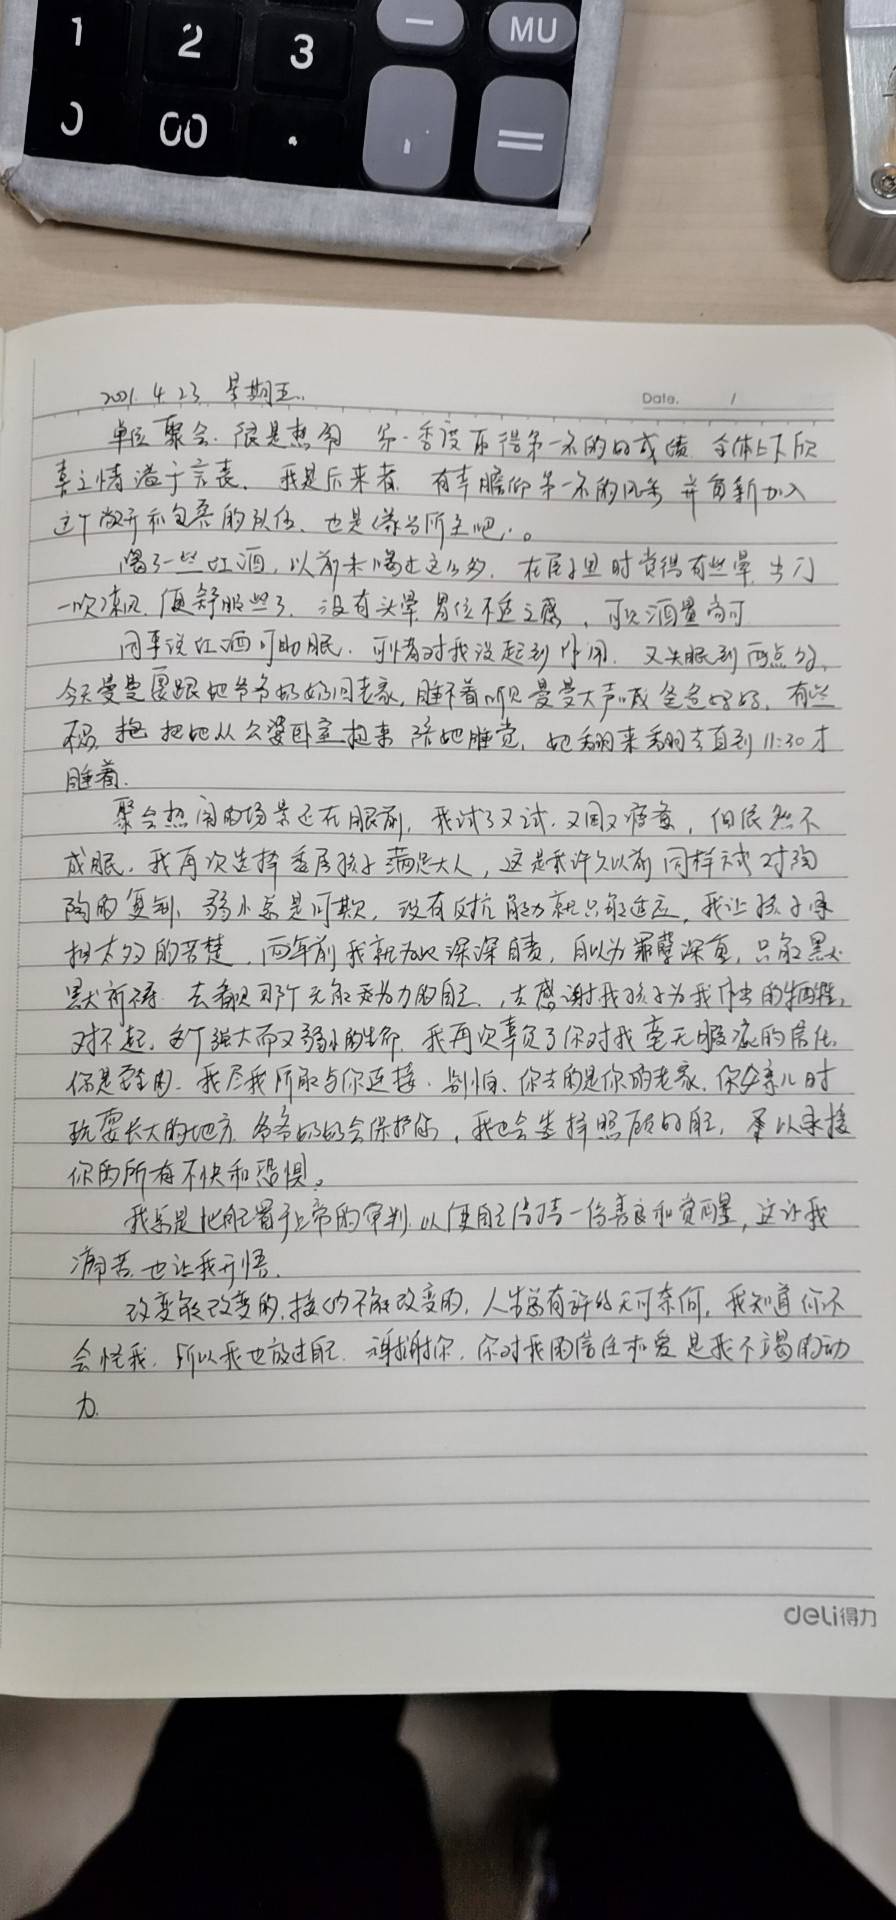 1 2 3 − MU
0 00 . =
2021. 4 23 星期五.
Date. /
单位聚会. 很是热闹 第一季度取得第一名的好成绩 全体上下欣
喜之情溢于言表. 我是后来者. 有幸瞻仰第一名的风采 并重新加入
这个敞开和包柔的队伍、也是
喝了一些红酒, 以前未喝过这么多. 在屋子里时觉得有些晕 出门
一吹凉风. 便舒服些了. 没有头晕 胃位不适之感, 可见酒量尚可
同事说红酒可助眠. 可惜对我没起到作用. 又失眠到两点多,
今天曼曼要跟她爷爷奶奶回老家, 睡不着听见曼曼大声喊爸爸妈妈, 有些
不忍, 抱 把她从公婆卧室抱来 陪她睡觉, 她翻来翻去直到11:30才
睡着.
聚会热闹的场景还在眼前, 我试了又试. 又困又疲惫, 但依然不
成眠. 我再次选择委屈孩子满足大人, 这是我许久以前同样方式对陶
陶的复制. 弱小总是可欺, 没有反抗能力就只能适应, 我让孩子承
担太多的苦楚, 两年前我就为此深深自责, 自以为罪孽深重, 只能默
默祈祷. 去看见那个无能无力的自己, 去感谢我孩子为我作出的牺牲,
对不起, 这个强大而又弱小的生命. 我再次辜负了你对我毫无瑕疵的信任.
你是安全的. 我尽我所能与你连接. 别怕、你去的是你的老家. 你婴儿时
玩耍长大的地方. 爷爷奶奶会保护你, 我也会选择照顾好自己, 足以承接
你的所有不快和恐惧。
我总是把自己置于上帝的审判. 以使自己保持一份善良和觉醒, 这让我
痛苦. 也让我开悟.
改变能改变的, 接纳不能改变的, 人生总有许多无可奈何, 我知道你不
会怪我. 所以我也放过自己. 谢谢你. 你对我的信任和爱是我不竭的动
力.
deli得力